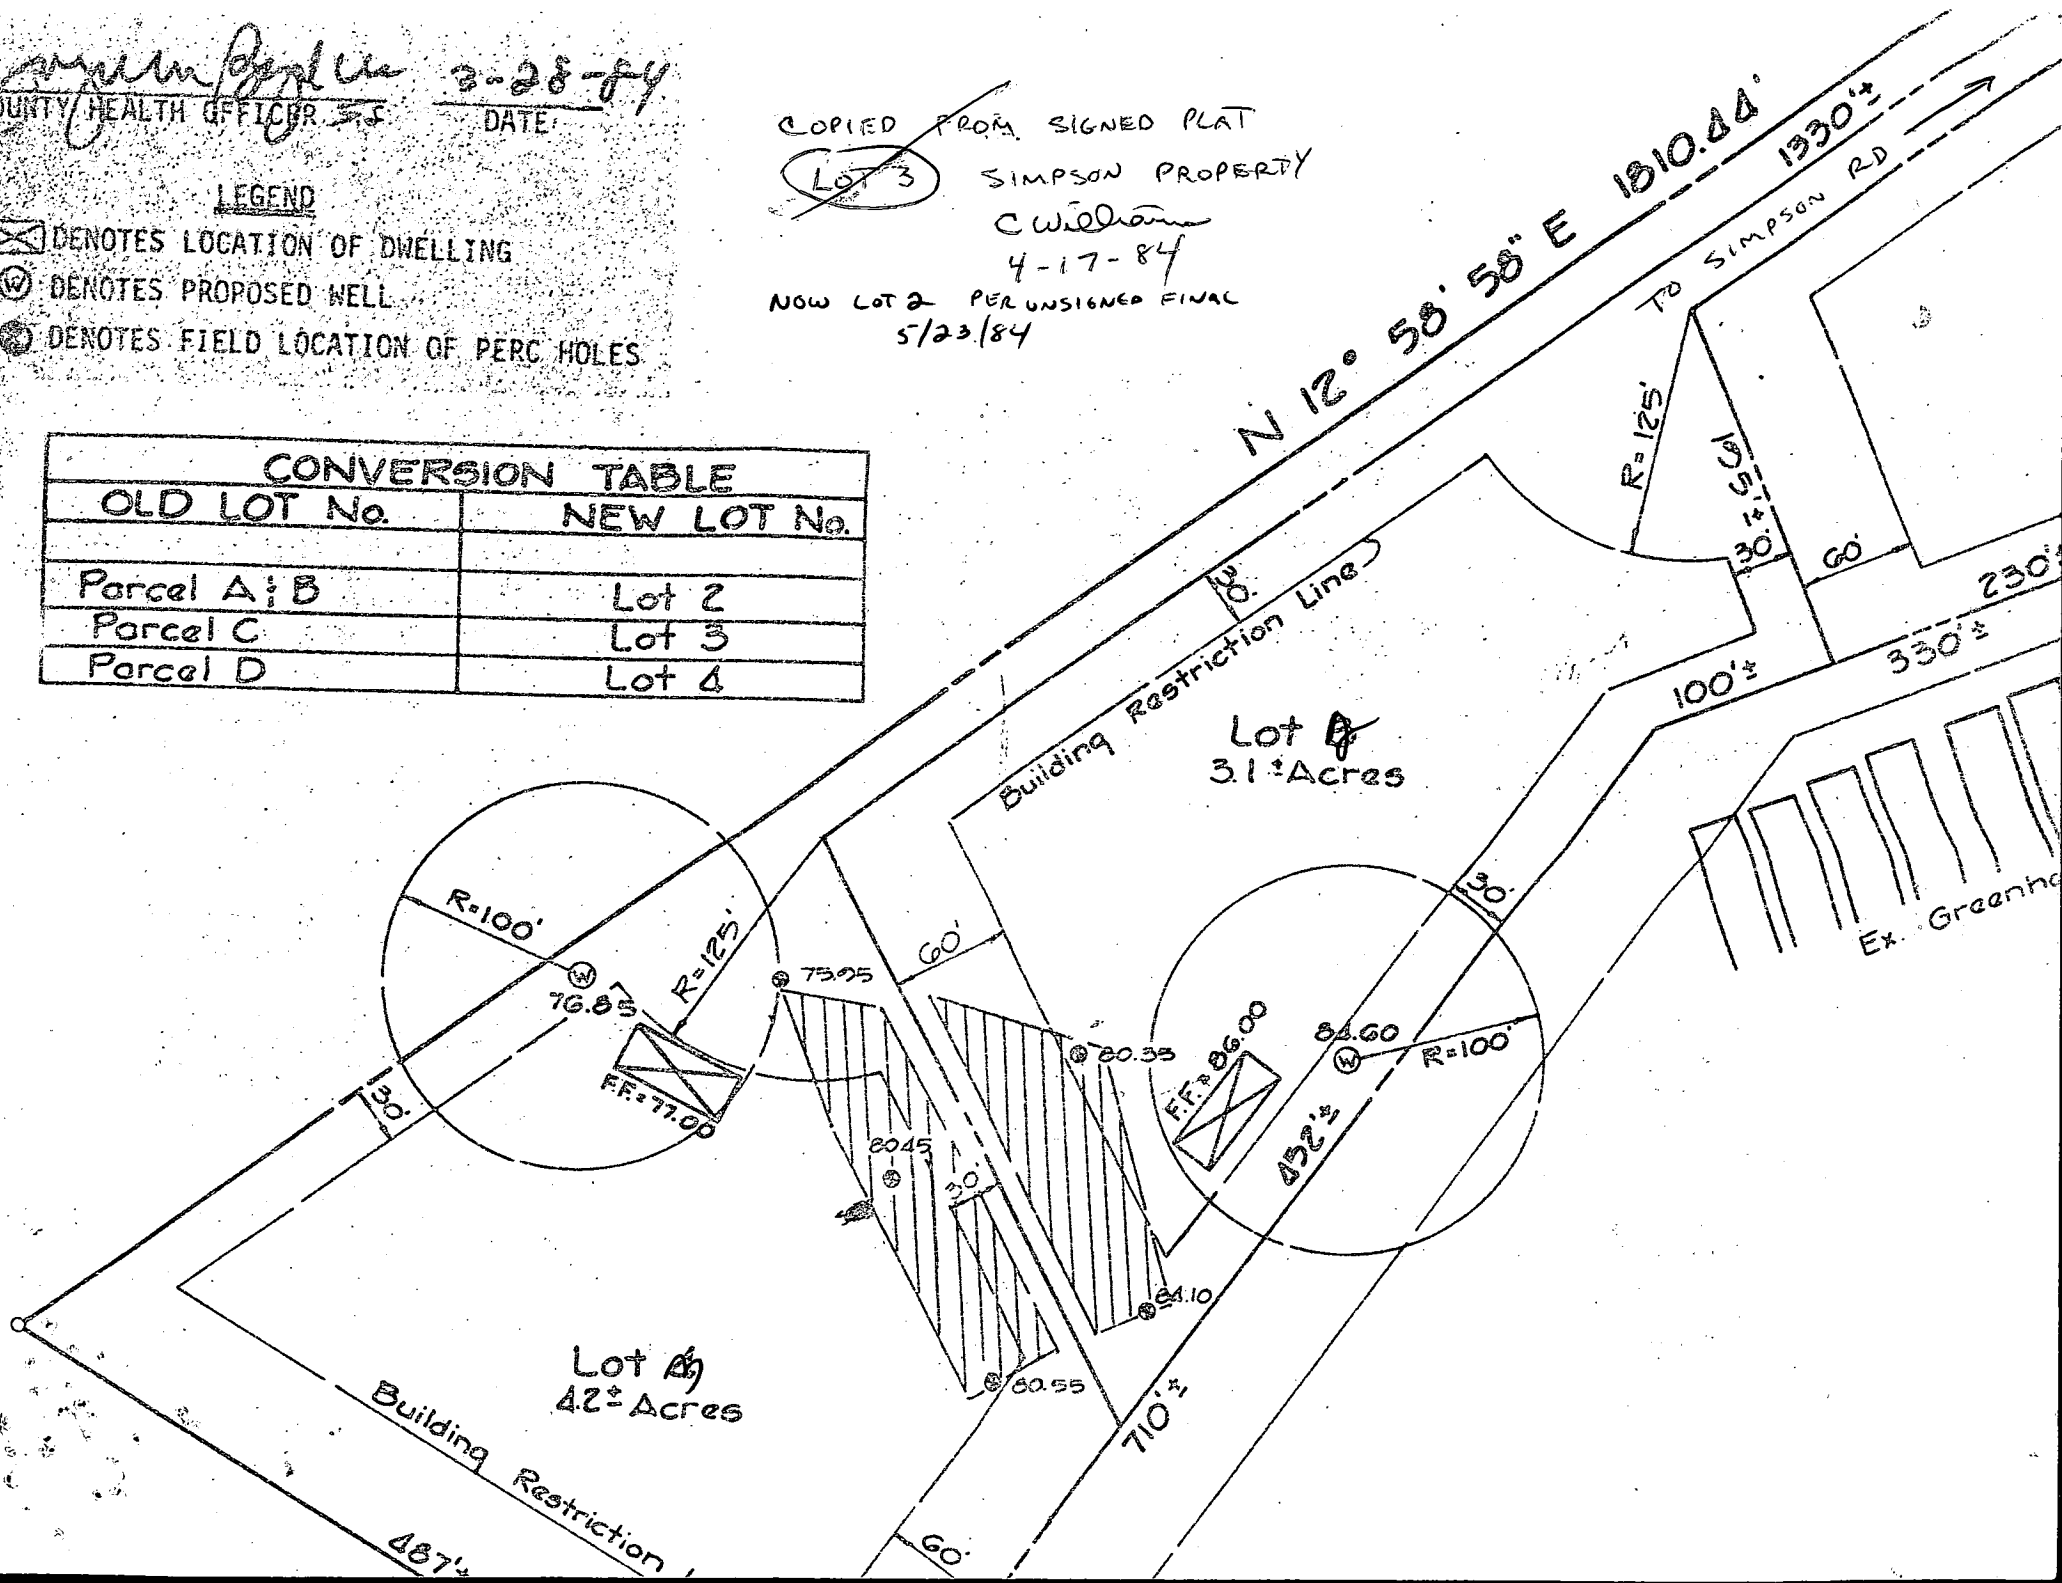 3-28-84
COUNTY HEALTH OFFICER
DATE
LEGEND
DENOTES LOCATION OF DWELLING
W DENOTES PROPOSED WELL
DENOTES FIELD LOCATION OF PERC HOLES
COPIED FROM SIGNED PLAT
LOT 3 SIMPSON PROPERTY
C Williams
4-17-84
NOW LOT 2 PER UNSIGNED FINAL
5/23/84
CONVERSION TABLE
OLD LOT No. NEW LOT No.
Parcel A & B Lot 2
Parcel C Lot 3
Parcel D Lot 4
N 12° 58' 58" E 1810.44'
1330'±
TO SIMPSON RD
R=125'
195'±
30'
60'
230'±
330'±
100'±
30'
Building Restriction Line
Lot
3.1±Acres
30'
Ex. Greenho
R=100'
W
76.85
R=125'
60'
75.95
F.F.=77.00
30'
80.35
F.F.=86.00
84.60
W
R=100'
452'±
80.45
30'
84.10
80.55
710'±
Lot
4.2± Acres
Building Restriction
487'±
60'